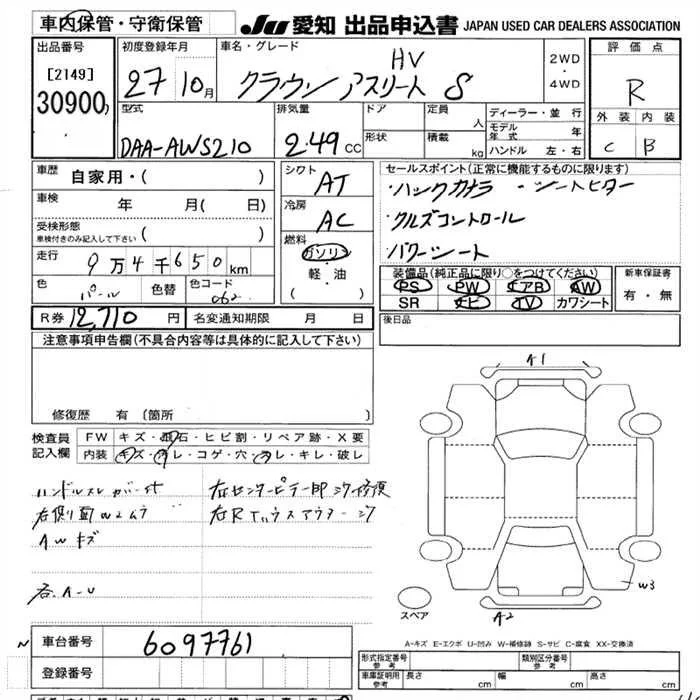 車内保管・守衛保管 JU 愛知 出品申込書 JAPAN USED CAR DEALERS ASSOCIATION
出品番号 初度登録年月 車名・グレード 2WD・4WD 評価点
[2149] 27 10月 HV クラウン アスリート S R
30900
型式 排気量 ドア 定員 人 ディーラー・並行 外装 内装
DAA-AWS210 2.49 CC 形状 積載 kg モデル年式 年 C B
ハンドル 左・右
車歴 自家用・( ) シフト AT セールスポイント(正常に機能するものに限ります)
車検 年 月( 日) 冷房 AC ・バックカメラ ・シートヒーター
受検形態 ・クルズコントロール
車検付きのみ記入して下さい ( ) 燃料 ガソリン ・パワーシート
走行 9万4千650km 軽・油
色 パール 色替 色コード 062 ( )
装備品(純正品に限り○をつけてください) 新車保証書
PS PW エアB AW 有・無
SR ナビ TV カワシート
R券 12,710 円 名変通知期限 月 日 後日品
注意事項申告欄(不具合内容等は具体的に記入して下さい)
修復歴 有 [箇所
検査員 FW キズ・飛石・ヒビ割・リペア跡・X要
記入欄 内装 キズ・ヨレ・コゲ・穴・スレ・キレ・破レ
ハンドルスレ 右センターピラー
右側面 W2ムラ
AWキズ
各.A-U
A1
W3
スペア A2
A-キズ E-エクボ U-凹み W-補修跡 S-サビ C-腐食 XX-交換済
車台番号 6097761
登録番号
形式指定番号 参考 類別区分番号 参考
車庫証明用 参考 長さ cm 幅 cm 高さ cm